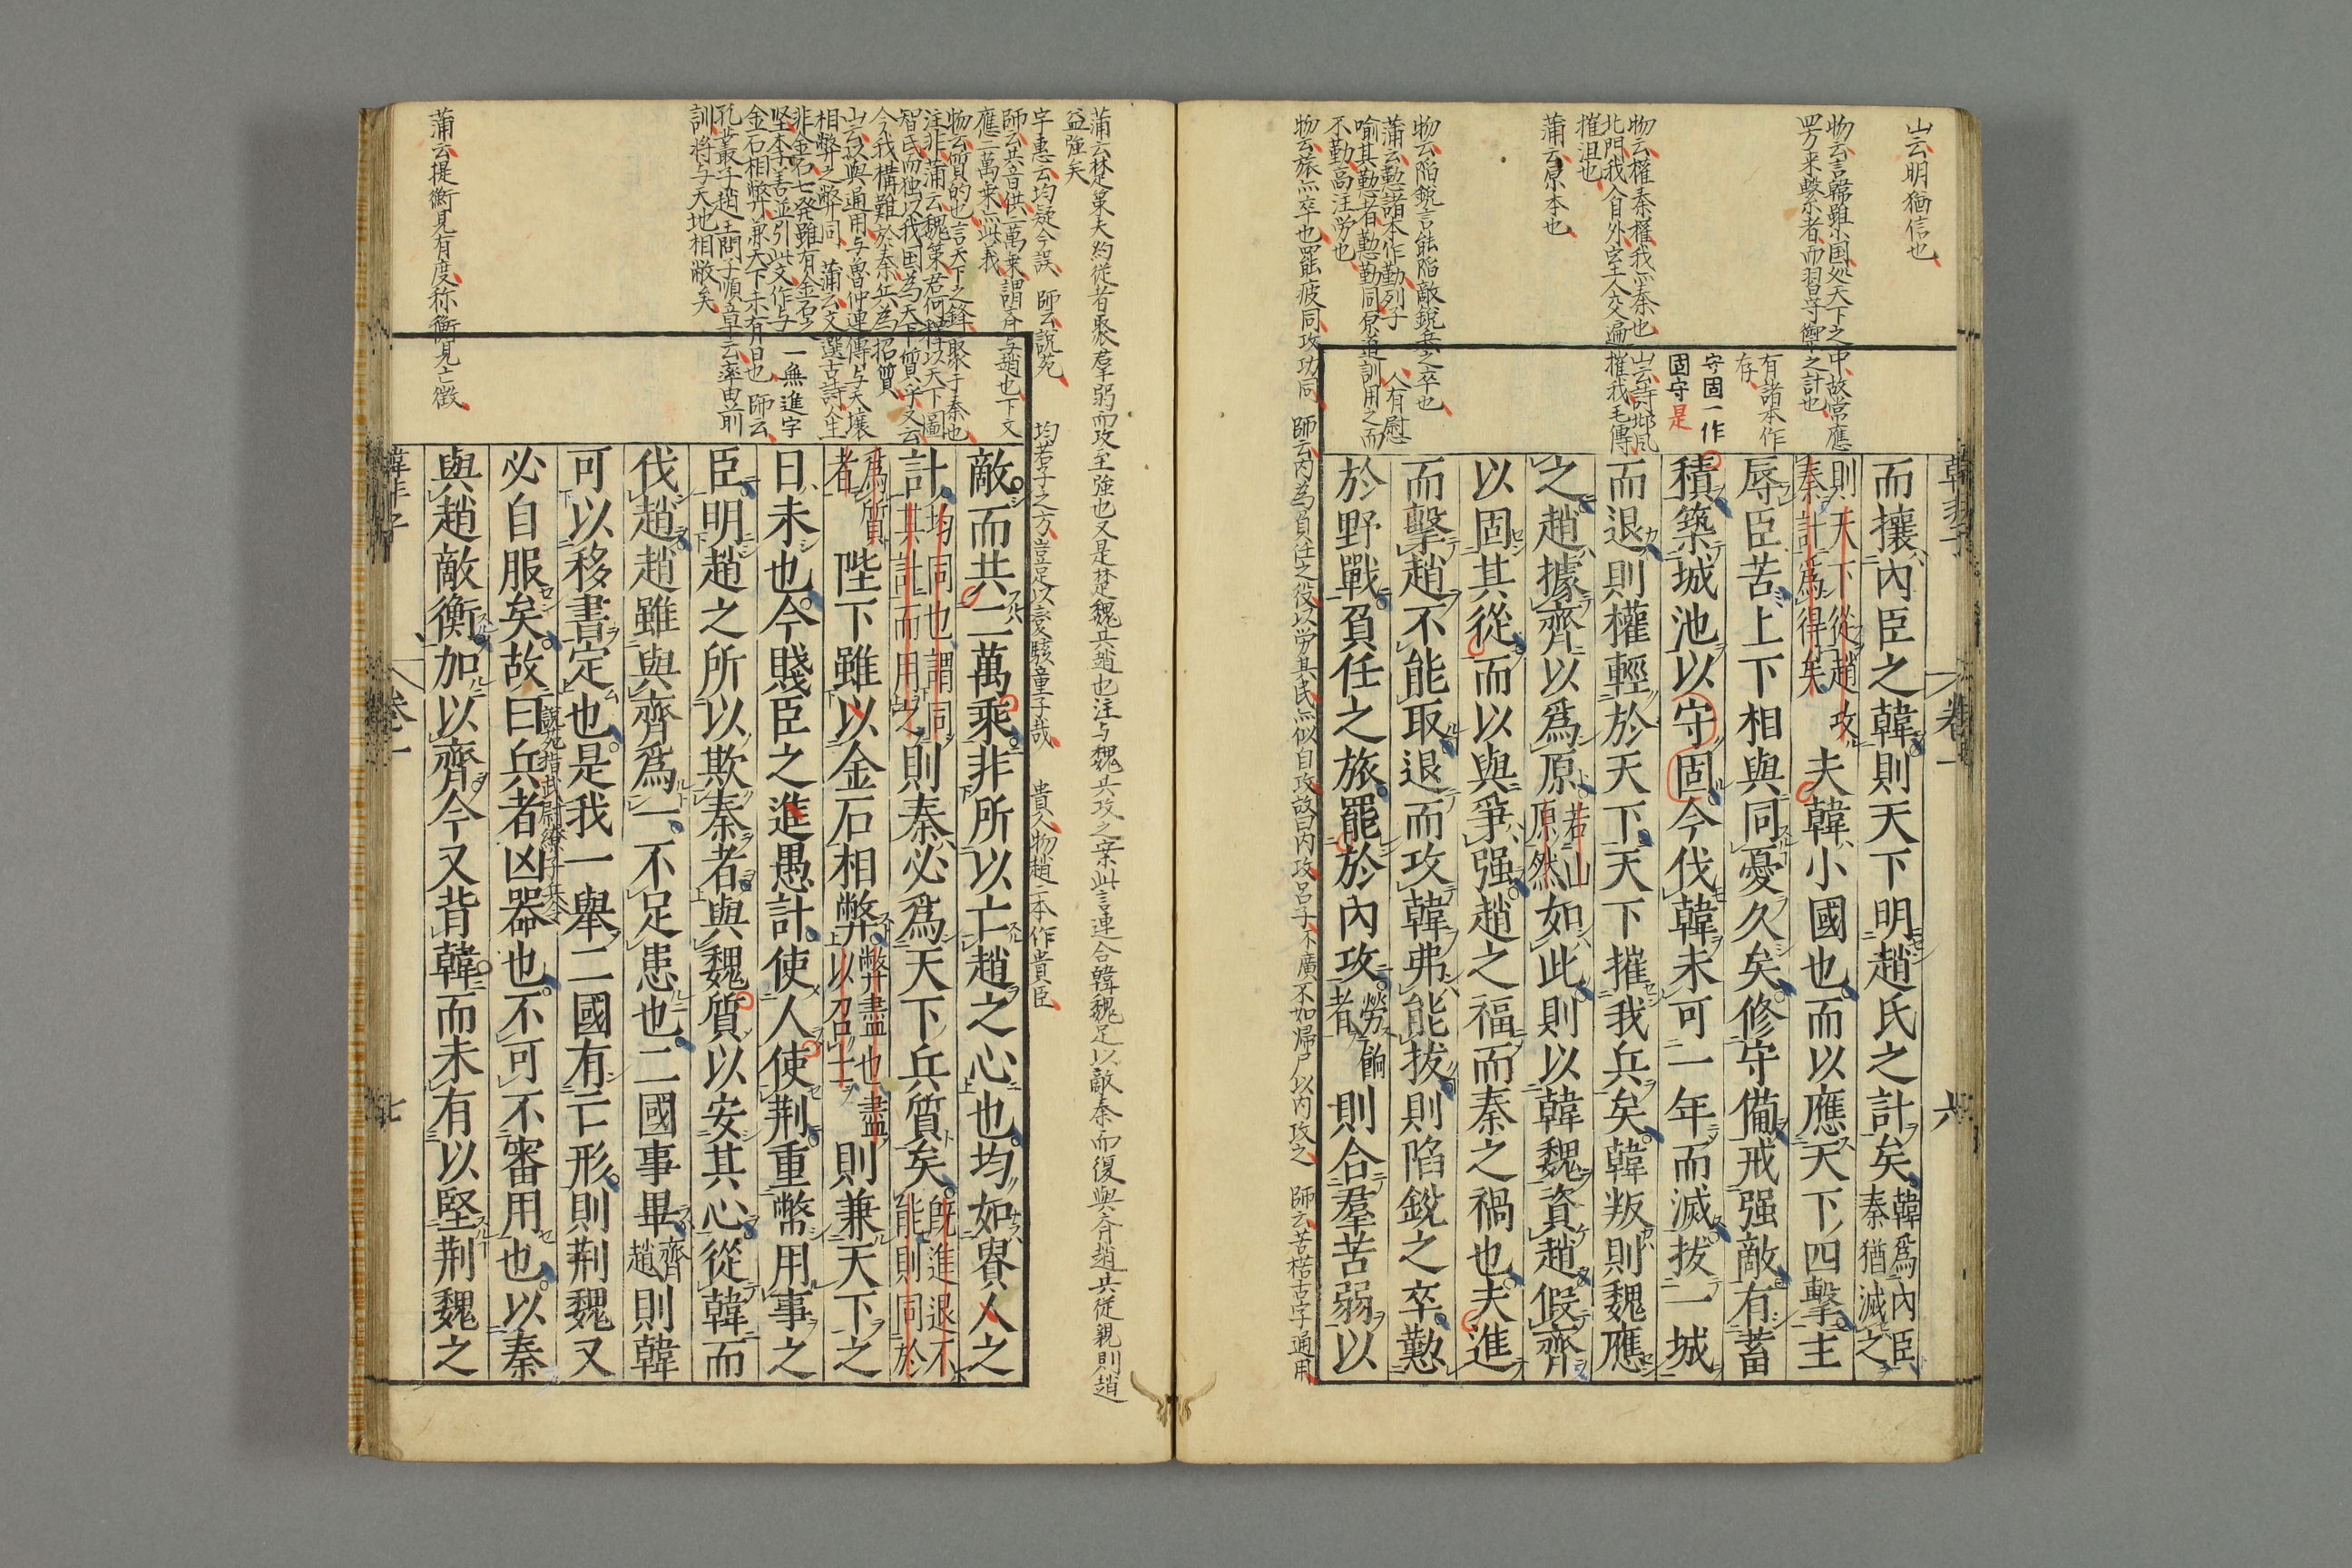 山云明猶信也
物云言韓雖小国処天下之中故常應
四方来擊秦者而習守禦之計也
有諸本作
存
守固一作
固守是
物云權秦權我亦秦也
山云詩邶風
北門我入自外室人交遍
摧我毛傳
摧沮也
蒲云原本也
物云陷銳言能陷敵銳兵之卒也
蒲云懃諸本作勤列子
人有慰
喻其懃者懃勤同原道訓用之而
不勤高注労也
物云旅亦卒也罷疲同攻功同
師云内為負任之役以労其民亦似自攻故曰内攻呂子不廣不如帰尸以内攻之
師云苦楛古字通用
韓非子
卷一
六
而攘內臣之韓則天下明趙氏之計矣韓爲內臣
秦猶滅之
則天下從趙攻
秦計爲得矣夫韓小國也而以應天下四擊主
辱臣苦上下相與同憂久矣修守備戒强敵有蓄
積築城池以守固今伐韓未可一年而滅拔一城
而退則權輕於天下天下摧我兵矣韓叛則魏應
之趙據齊以爲原若山
原然如此則以韓魏資趙假齊
以固其從而以與爭强趙之福而秦之禍也夫進
而擊趙不能取退而攻韓弗能拔則陷銳之卒懃
於野戰負任之旅罷於內攻勞餉
者則合羣苦弱以
蒲云楚策夫約從者聚羣弱而攻至強也又是楚魏共趙也注与魏共攻之案此言連合韓魏足以敵秦而復與斉趙共從親則趙
益強矣
字惠云均疑今誤
師云説苑
均若子之方豈足以變駭童子哉
貴人物趙二本作貴臣
師云其音供二萬乗謂斉与趙也下文
應二萬乗亦此義
物云質的也言天下之鋒聚于秦也
注非蒲云魏策若何釋以天下圖
智氏而独以我国為天下質乎又云
今我構難於秦兵為招質
山云以與通用与魯仲連傳与天壤
相弊之弊同
蒲云文選古詩人生
非金石七発雖有金石之
堅李善並引此文作与
一無進字
金石相弊兼天下未有日也
師云
孔叢子趙王問子順章云率由前
訓将与天地相敝矣
蒲云提衡見有度称衡見亡徵
敵而共二萬乘非所以亡趙之心也均如貴人之
計均同也謂同
其計而用之則秦必爲天下兵質矣旣進退不
能則同於
爲質
者陛下雖以金石相弊弊盡也盡
以召士則兼天下之
日未也今賤臣之進愚計使人使荆重幣用事之
臣明趙之所以欺秦者與魏質以安其心從韓而
伐趙趙雖與齊爲一不足患也二國事畢齊
趙則韓
可以移書定也是我一舉二國有亡形則荆魏又
說苑指武尉繚子兵令
必自服矣故曰兵者凶器也不可不審用也以秦
與趙敵衡加以齊今又背韓而未有以堅荆魏之
韓非子
卷一
七